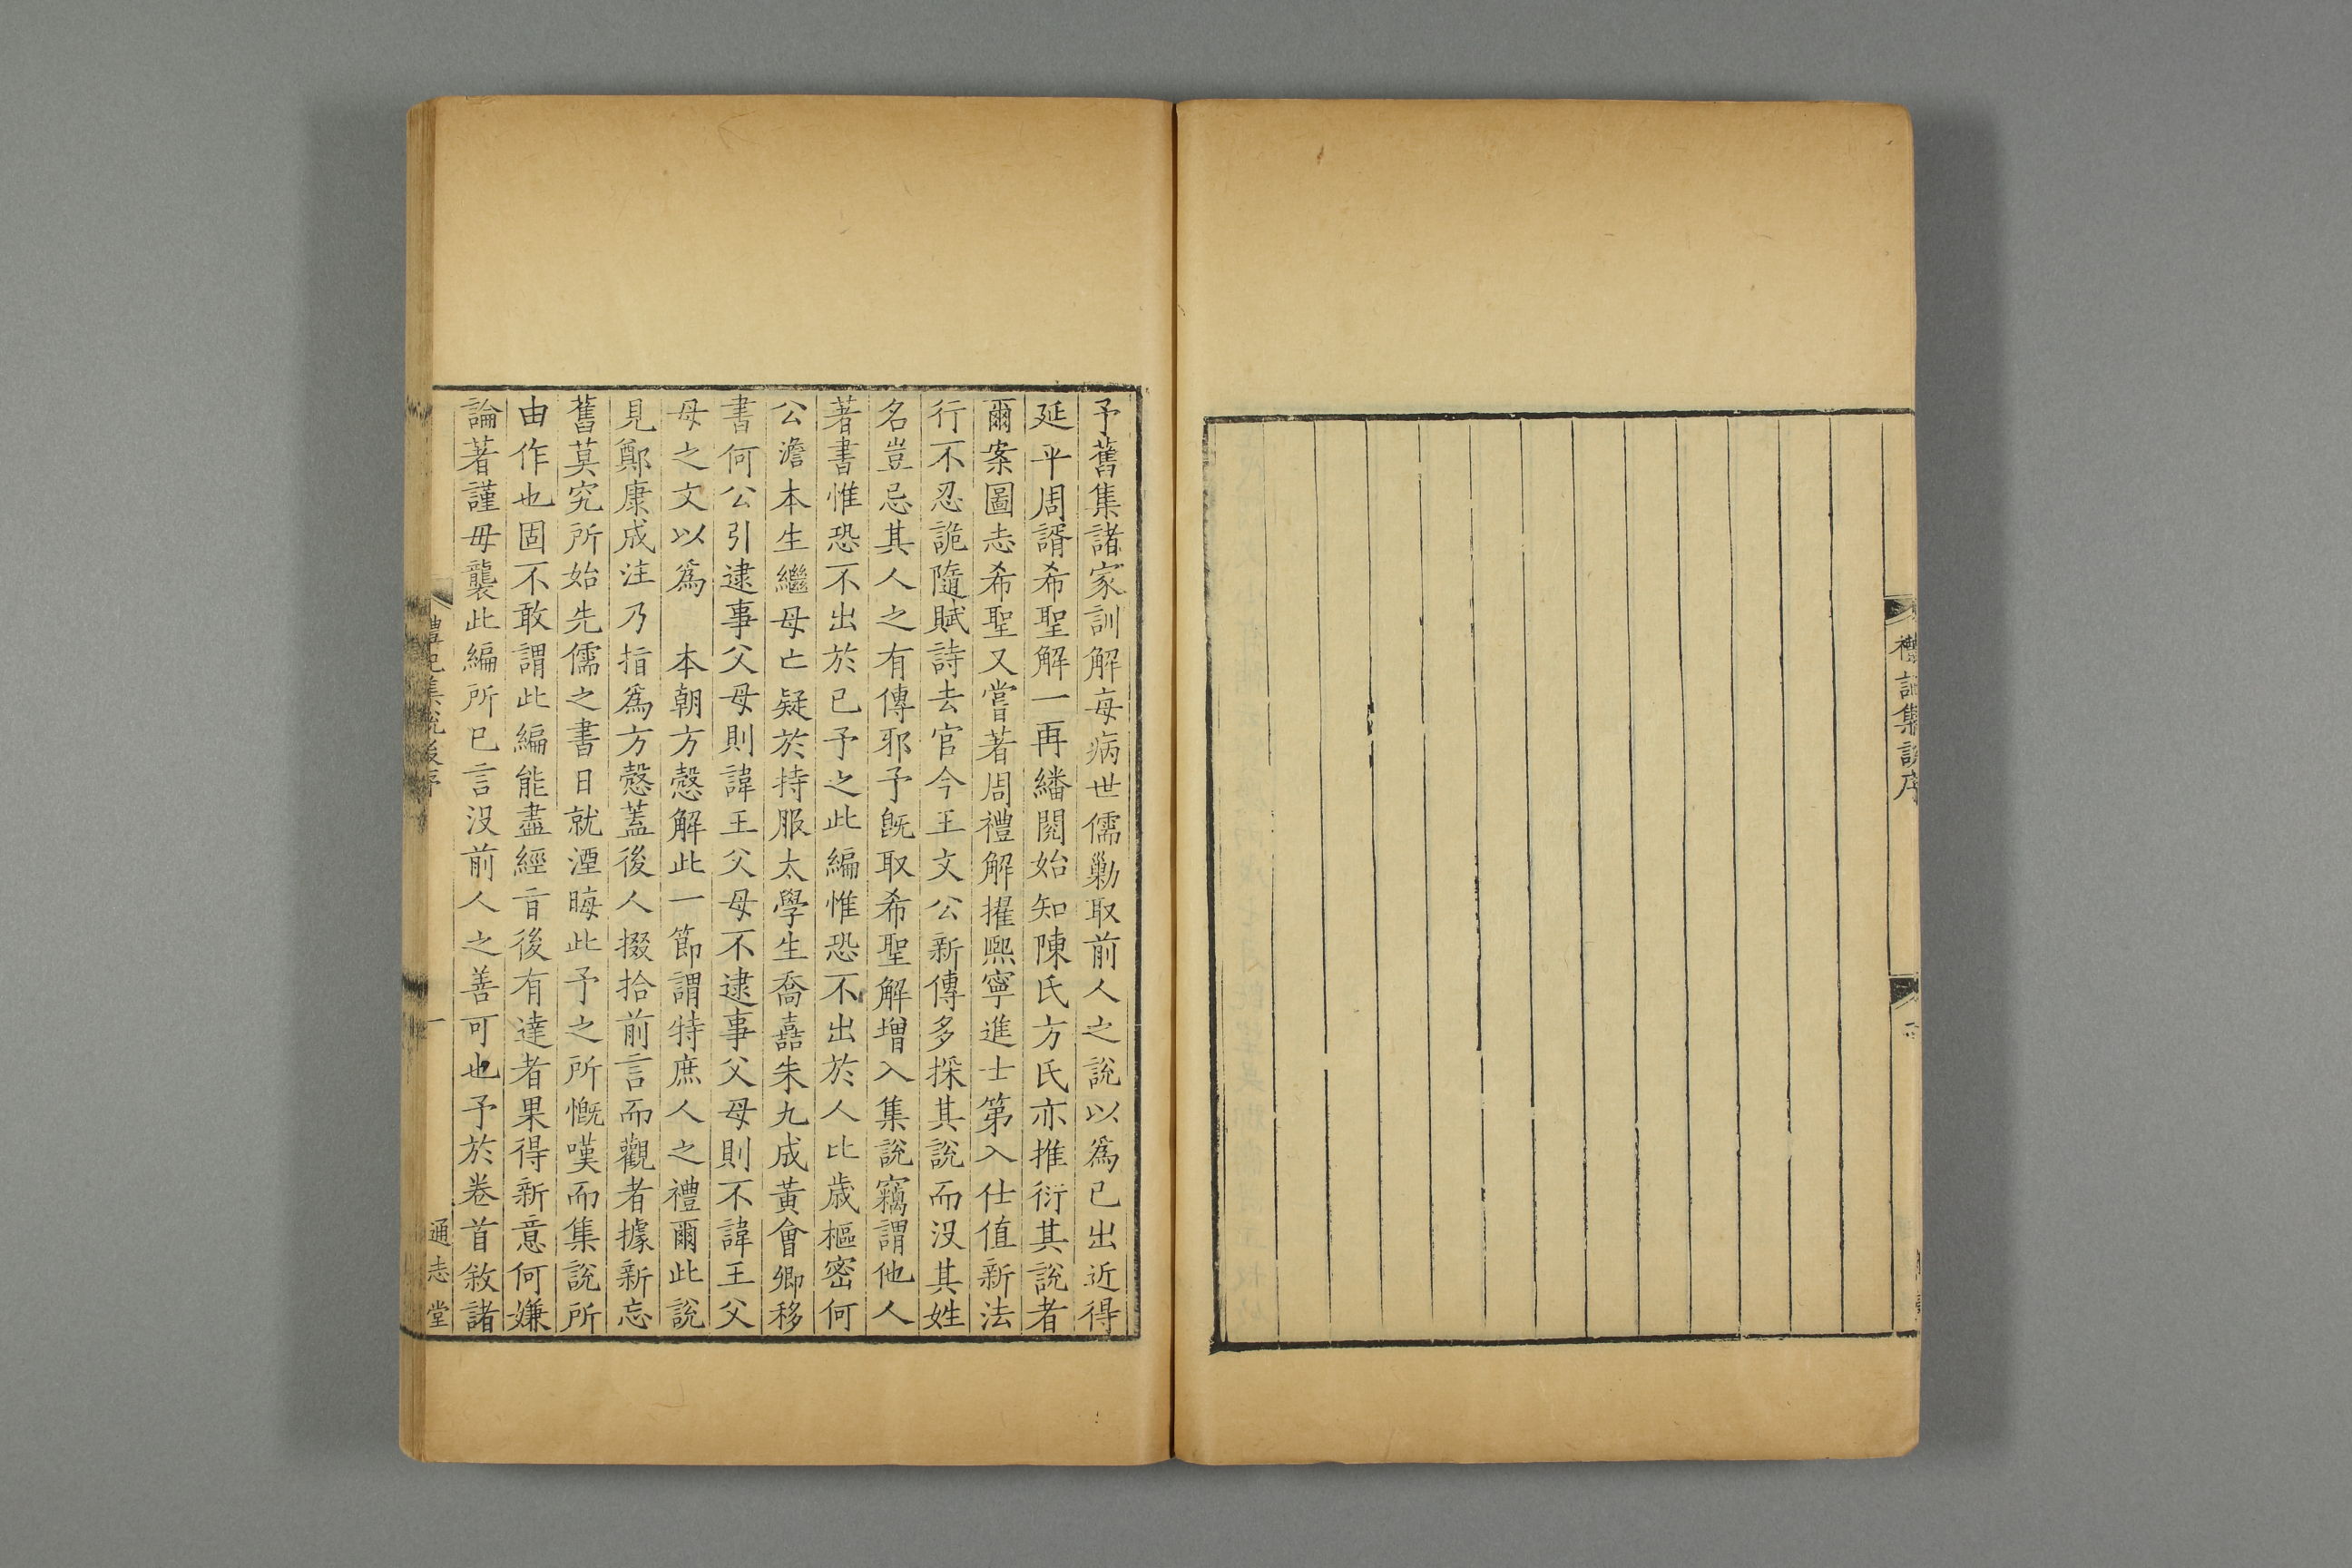 禮記集說序
予舊集諸家訓解每病世儒勦取前人之說以爲已出近得
延平周諝希聖解一再繙閱始知陳氏方氏亦推衍其說者
爾案圖志希聖又嘗著周禮解擢熙寧進士第入仕值新法
行不忍詭隨賦詩去官今王文公新傳多採其說而沒其姓
名豈忌其人之有傳邪予旣取希聖解增入集說竊謂他人
著書惟恐不出於已予之此編惟恐不出於人比歲樞密何
公澹本生繼母亡疑於持服太學生喬嚞朱九成黃會卿移
書何公引逮事父母則諱王父母不逮事父母則不諱王父
母之文以爲　本朝方慤解此一節謂特庶人之禮爾此說
見鄭康成注乃指爲方慤蓋後人掇拾前言而觀者據新忘
舊莫究所始先儒之書日就湮晦此予之所慨嘆而集說所
由作也固不敢謂此編能盡經旨後有達者果得新意何嫌
論著謹毋襲此編所已言沒前人之善可也予於卷首敘諸
禮記集說後序
一
通志堂